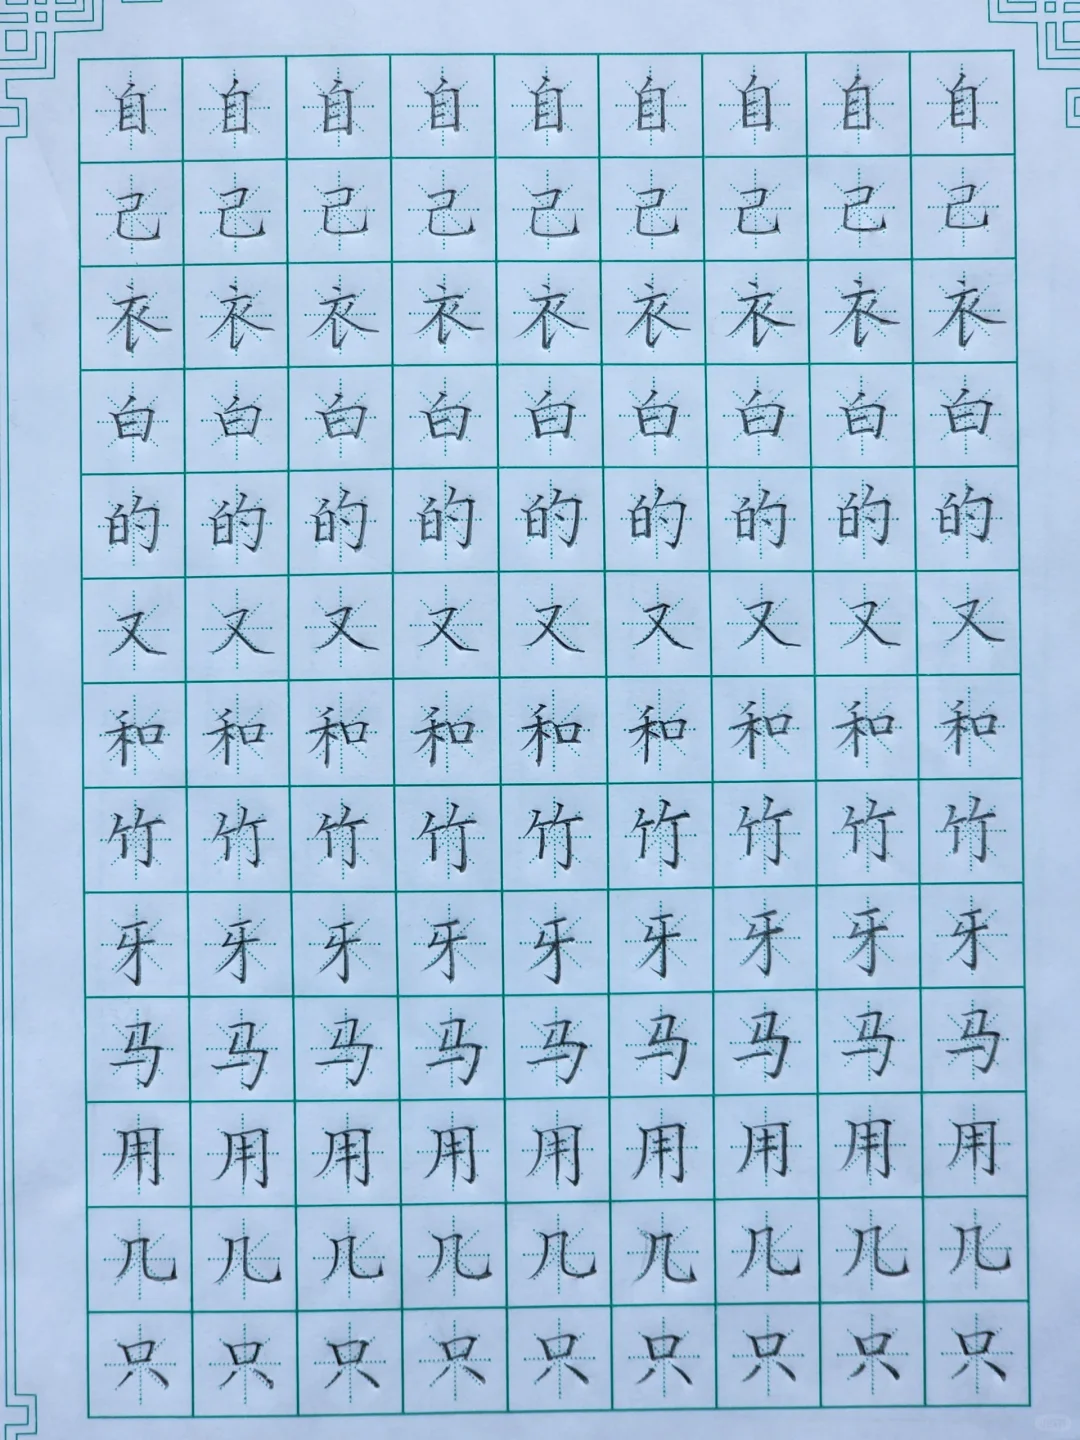 自自自自自自自自自
己己己己己己己己己
衣衣衣衣衣衣衣衣衣
白白白白白白白白白
的的的的的的的的的
又又又又又又又又又
和和和和和和和和和
竹竹竹竹竹竹竹竹竹
牙牙牙牙牙牙牙牙牙
马马马马马马马马马
用用用用用用用用用
几几几几几几几几几
只只只只只只只只只